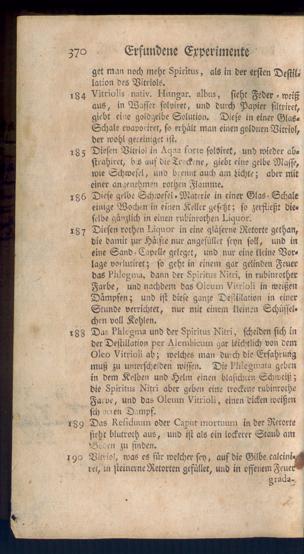 370 Erfundene Experimente
get man noch mehr Spiritus, als in der ersten Destil-
lation des Vitriols.
184 Vitriolis nativ. Hungar. albus, sieht Feder-weiß
aus, in Wasser solviret, und durch Papier filtriret,
giebt eine goldgelbe Solution. Diese in einer Glas-
Schale evaporiret, so erhält man einen goldnen Vitriol,
der wohl gereiniget ist.
185 Diesen Vitriol in Aqua forte solviret, und wieder ab-
strahiret, bis auf die Trockene, giebt eine gelbe Masse,
wie Schwefel, und brennt auch am Lichte; aber mit
einer angenehmen rothen Flamme.
186 Diese gelbe Schwefel-Materie in einer Glas-Schale
einige Wochen in einen Keller gesetzt; so zerfließt die-
selbe gänzlich in einen rubinrothen Liquor.
187 Diesen rothen Liquor in eine gläserne Retorte gethan,
die damit zur Hälfte nur angefüllet seyn soll, und in
eine Sand-Capelle geleget, und nur eine kleine Vor-
lage vorlutiret; so geht in einem gar gelinden Feuer
das Phlegma, dann der Spiritus Nitri, in rubinrother
Farbe, und nachdem das Oleum Vitrioli in weißen
Dämpfen; und ist diese ganze Destillation in einer
Stunde verrichtet, nur mit einem kleinen Schüssel-
chen voll Kohlen.
188 Das Phlegma und der Spiritus Nitri, scheiden sich in
der Destillation per Alembicum gar leichtlich von dem
Oleo Vitrioli ab; welches man durch die Erfahrung
muß zu unterscheiden wissen. Die Phlegmata geben
in dem Kolben und Helm einen blaslichten Schweiß;
die Spiritus Nitri aber geben eine trockene rubinrothe
Farbe, und das Oleum Vitrioli, einen dicken weißen
schweren Dampf.
189 Das Residuum oder Caput mortuum in der Retorte
sieht blutroth aus, und ist als ein lockerer Staub am
Boden zu finden.
190 Vitriol, was es für welcher sey, auf die Gilbe calcini-
ret, in steinerne Retorten gefüllet, und in offenem Feuer
grada-